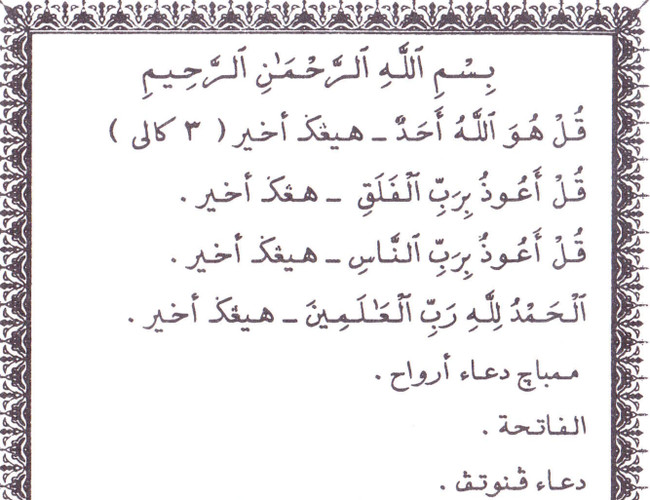 بِسْمِ ٱللَّهِ ٱلرَّحْمَـٰنِ ٱلرَّحِيمِ
قُلْ هُوَ ٱللَّهُ أَحَدٌ ـ هيڠݢ أخير ( ٣ كالى )
قُلْ أَعُوذُ بِرَبِّ ٱلْفَلَقِ ـ هڠݢ أخير .
قُلْ أَعُوذُ بِرَبِّ ٱلنَّاسِ ـ هيڠݢ أخير .
ٱلْحَمْدُ لِلَّهِ رَبِّ ٱلْعَـٰلَمِينَ ـ هيڠݢ أخير .
ممباچ دعاء أرواح .
الفاتحة .
دعاء ڤنوتڤ .